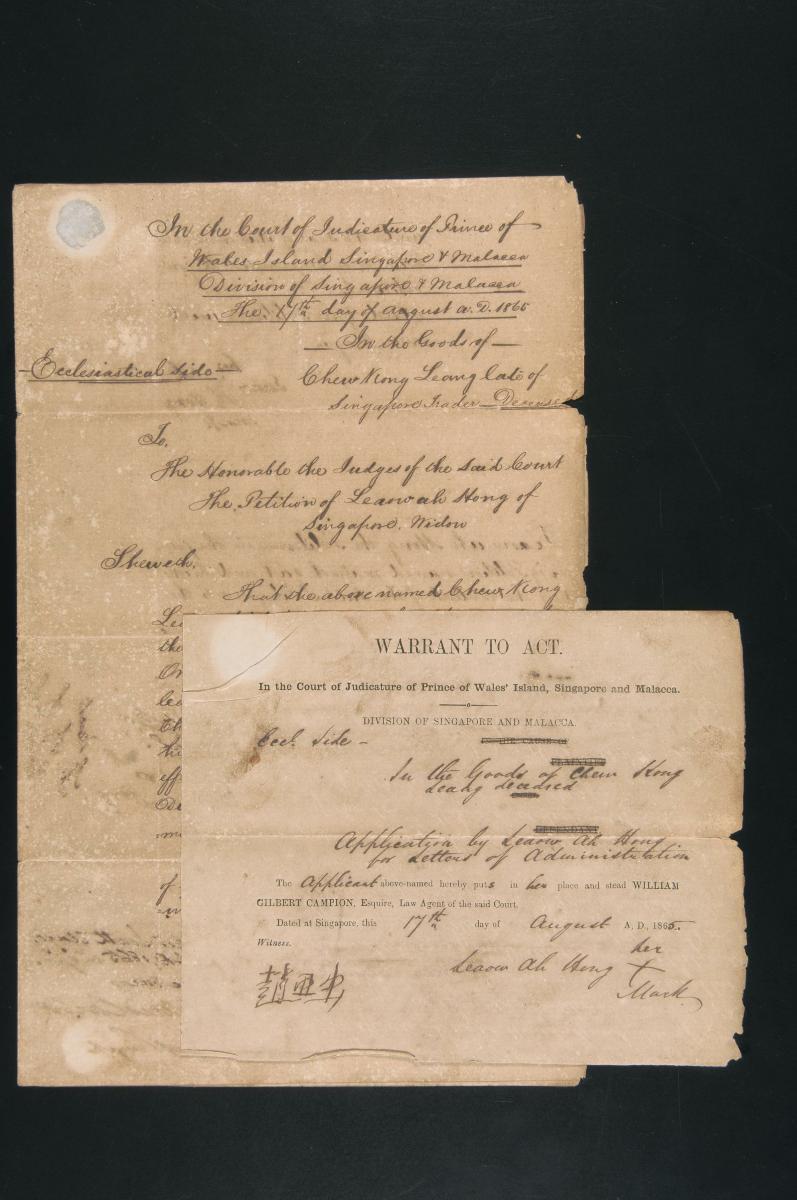 In the Court of Judicature of Prince of
Wales Island Singapore & Malacca
Division of Singapore & Malacca
The 17th day of August A.D. 1865
In the Goods of
Ecclesiastical Side
Chew Kong Leang late of
Singapore Trader Deceased
To,
The Honorable the Judges of the said Court
The Petition of Leaow ah Hong of
Singapore, Widow
Sheweth.
That the above named Chew Kong
WARRANT TO ACT.
In the Court of Judicature of Prince of Wales' Island, Singapore and Malacca.
DIVISION OF SINGAPORE AND MALACCA.
Eccl. Side –
THE CAUSE
PLAINTIFF
In the Goods of Chew Kong
Leang deceased
DEFENDANT
Application by Leaow Ah Hong
for Letters of Administration
The Applicant above-named hereby puts in her place and stead WILLIAM
GILBERT CAMPION, Esquire, Law Agent of the said Court.
Dated at Singapore, this 17th day of August A, D., 1865.
Witness.
her
Leaow Ah Hong X
Mark